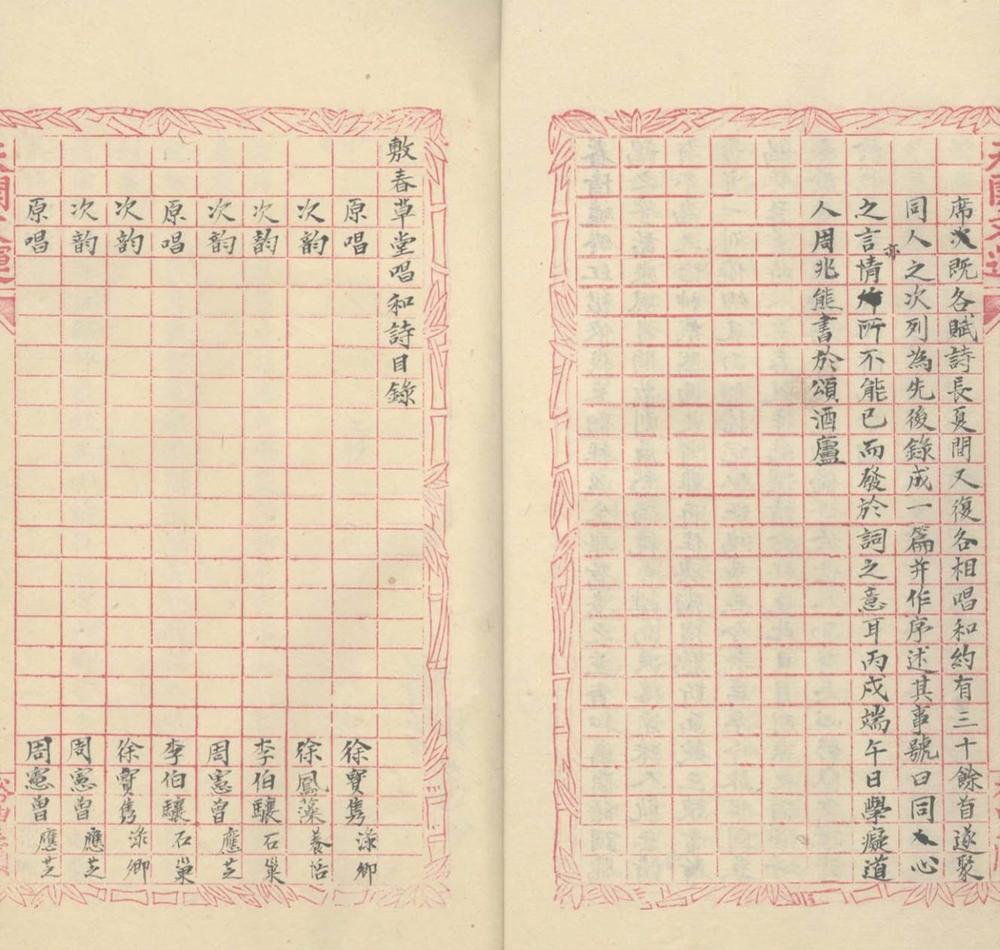 席次既各賦詩長夏間又復各相唱和約有三十餘首遂聚
同人之次列為先後錄成一篇并作序述其事號曰同人心
之言情亦所不能已而發於詞之意耳丙戌端午日學癡道
人周兆熊書於頌酒廬
敷春草堂唱和詩目錄
原唱 徐寶雋 淥卿
次韵 徐鳳藻 養恬
次韵 李伯驤 石巢
次韵 周憲曾 應芝
原唱 李伯驤 石巢
次韵 徐寶雋 淥卿
次韵 周憲曾 應芝
原唱 周憲曾 應芝